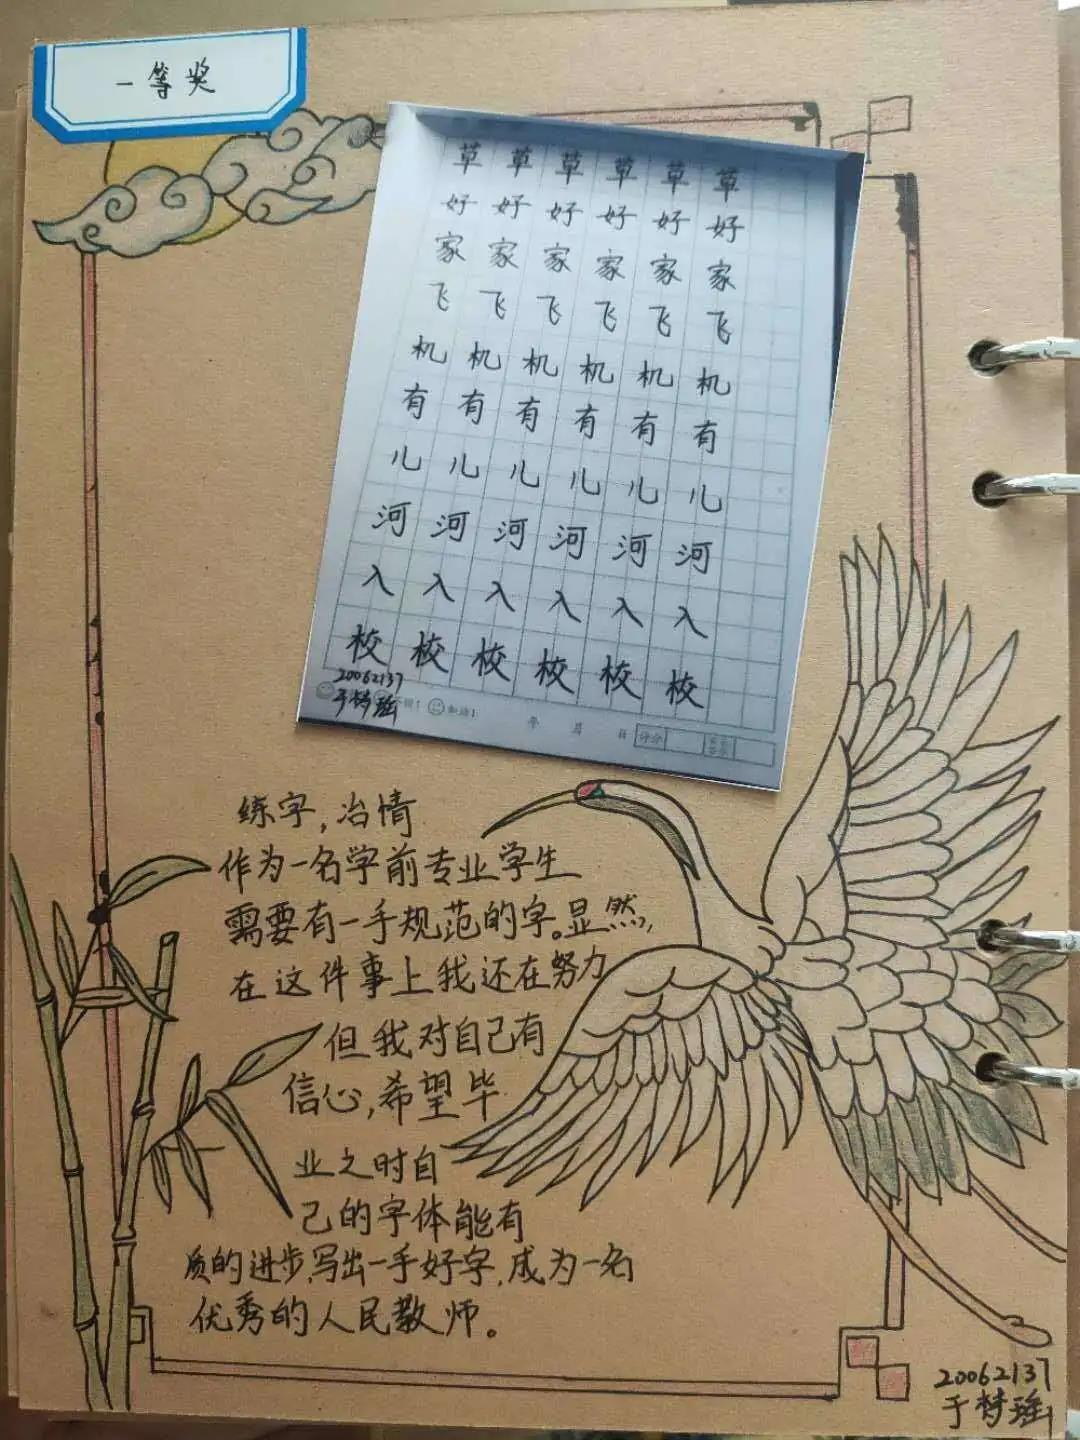 一等奖
草草草草草草
好好好好好好
家家家家家家
飞飞飞飞飞飞
机机机机机机
有有有有有有
儿儿儿儿儿儿
河河河河河河
入入入入入入
校校校校校校
20062137
于梦瑶
加油！
年 月 日 评分
练字，冶情
作为一名学前专业学生
需要有一手规范的字。显然，
在这件事上我还在努力
但我对自己有
信心，希望毕
业之时自
己的字体能有
质的进步，写出一手好字，成为一名
优秀的人民教师。
20062137
于梦瑶